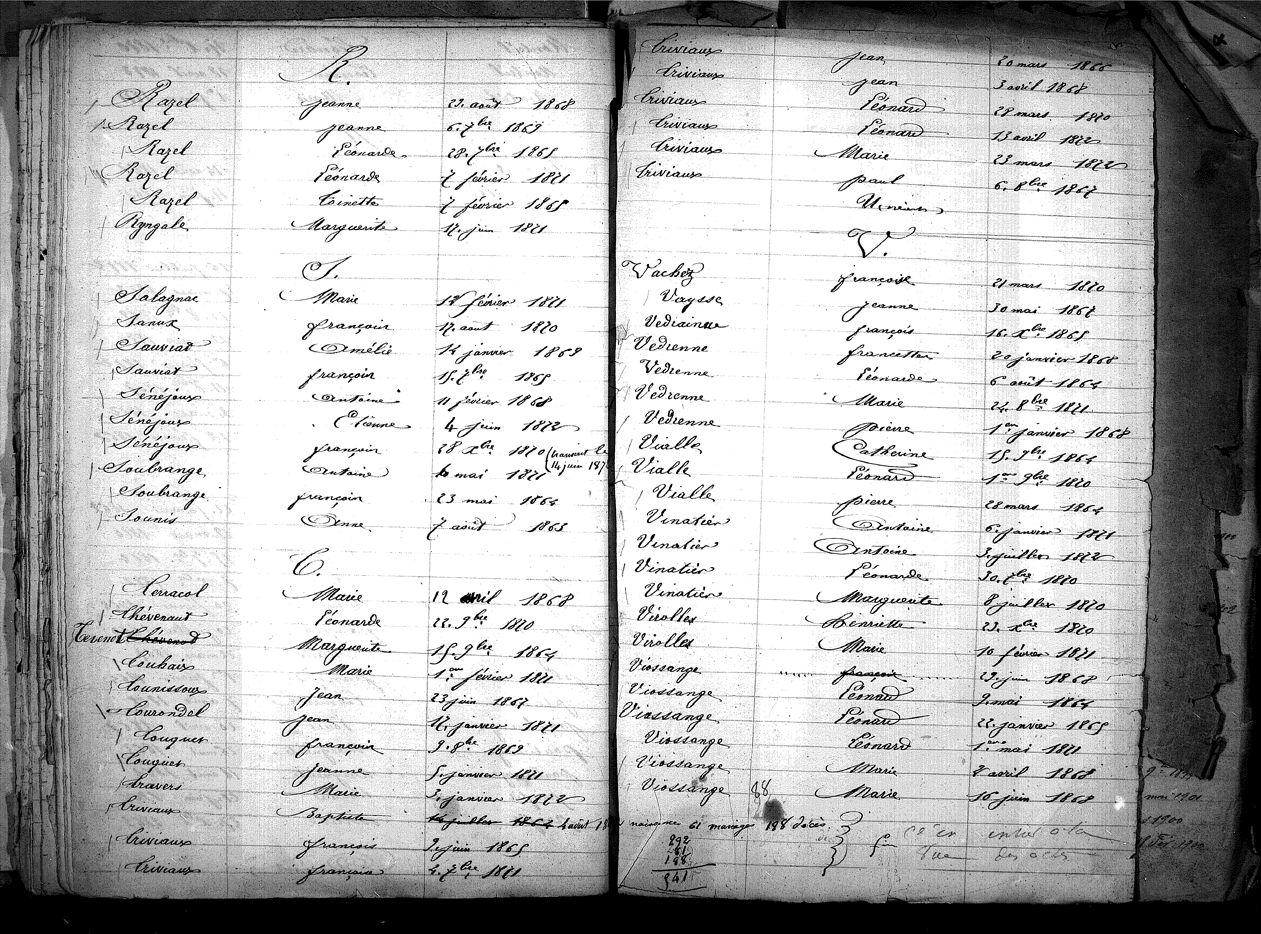 R.
Razel Jeanne 23. août 1868
Razel Jeanne 6. 7bre 1869
Razel Léonarde 28. 7bre 1865
Razel Léonarde 7 février 1871
Razel Tinette 7 février 1865
Ryngale Marguerite 17. juin 1871
S.
Salagnac Marie 18 février 1871
Sanux françois 17. août 1870
Sauviat Amélie 14 janvier 1869
Sauviat françois 15. 7bre 1865
Sénéjoux Antoine 11 février 1868
Sénéjoux Etienne 4 juin 1872
Sénéjoux françois 28 Xbre 1870
Soubrange Antoine mai 1871
Soubrange françois 23 mai 1864
Sounis Anne 7 août 1865
T.
Terracol Marie 12 avril 1868
Thévenaut Léonarde 22. 9bre 1870
Marguerite 15. 9bre 1864
Touhaix Marie 1er février 1871
Tounissoux Jean 23 juin 1867
Tourondel Jean 17. janvier 1871
Touquet françois 9. 8bre 1869
Touquet Jeanne 5. janvier 1871
travers Marie 3. janvier 1872
triviaux Baptiste 14 juillet 1864
triviaux françois 9. juin 1865
triviaux françois 2. 7bre 1871
triviaux Jean 20 mars 1866
triviaux Jean 3 avril 1868
triviaux Léonard 29 mars 1870
triviaux Léonard 13 avril 1872
triviaux Marie 23 mars 1872
triviaux paul 6. 8bre 1867
V.
Vachez françoise 21 mars 1870
Vaysse Jeanne 30 mai 1867
Vediainne françois 16. Xbre 1865
Vedrenne 20 janvier 1868
Vedrenne Léonarde 6 août 1864
Vedrenne Marie 24. 8bre 1871
Vedrenne pierre 1er janvier 1868
Vialle Catherine 15. 9bre 1864
Vialle Léonard 1er 9bre 1870
Vialle pierre 28 mars 1864
Vinatier Antoine 6. janvier 1871
Vinatier Antoine 3. juillet 1872
Vinatier Léonarde 30. 7bre 1870
Vinatier Marguerite 8 juillet 1870
Virolles Henriette 23. Xbre 1870
Virolles Marie 10 février 1871
Viossange françois 29. juin 1868
Viossange Léonard 9. mai 1864
Viossange Léonard 22. janvier 1865
Viossange Léonard 1er mai 1871
Viossange Marie 2 avril 1868
Viossange Marie 16 juin 1868
88
naissance 61 mariages 188 décès
292
61
188
541